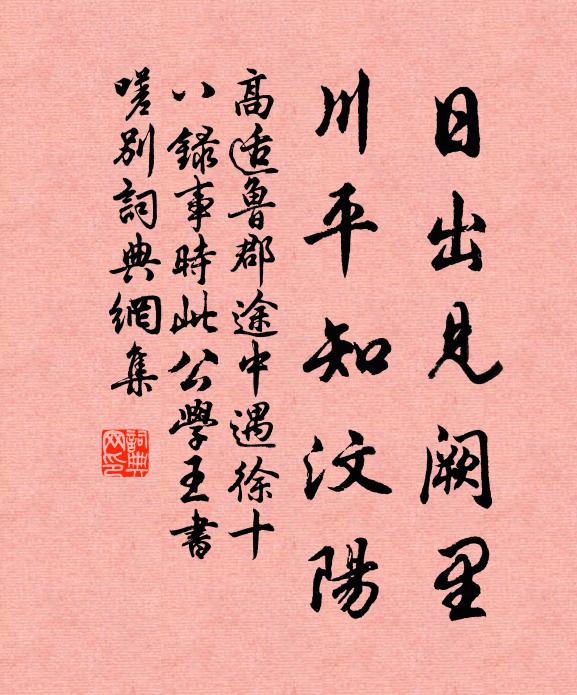 日出見闕里
川平知汶陽
高适魯郡途中遇徐十
八錄事時此公學王書
嗟別詞典網集
詞典
网印